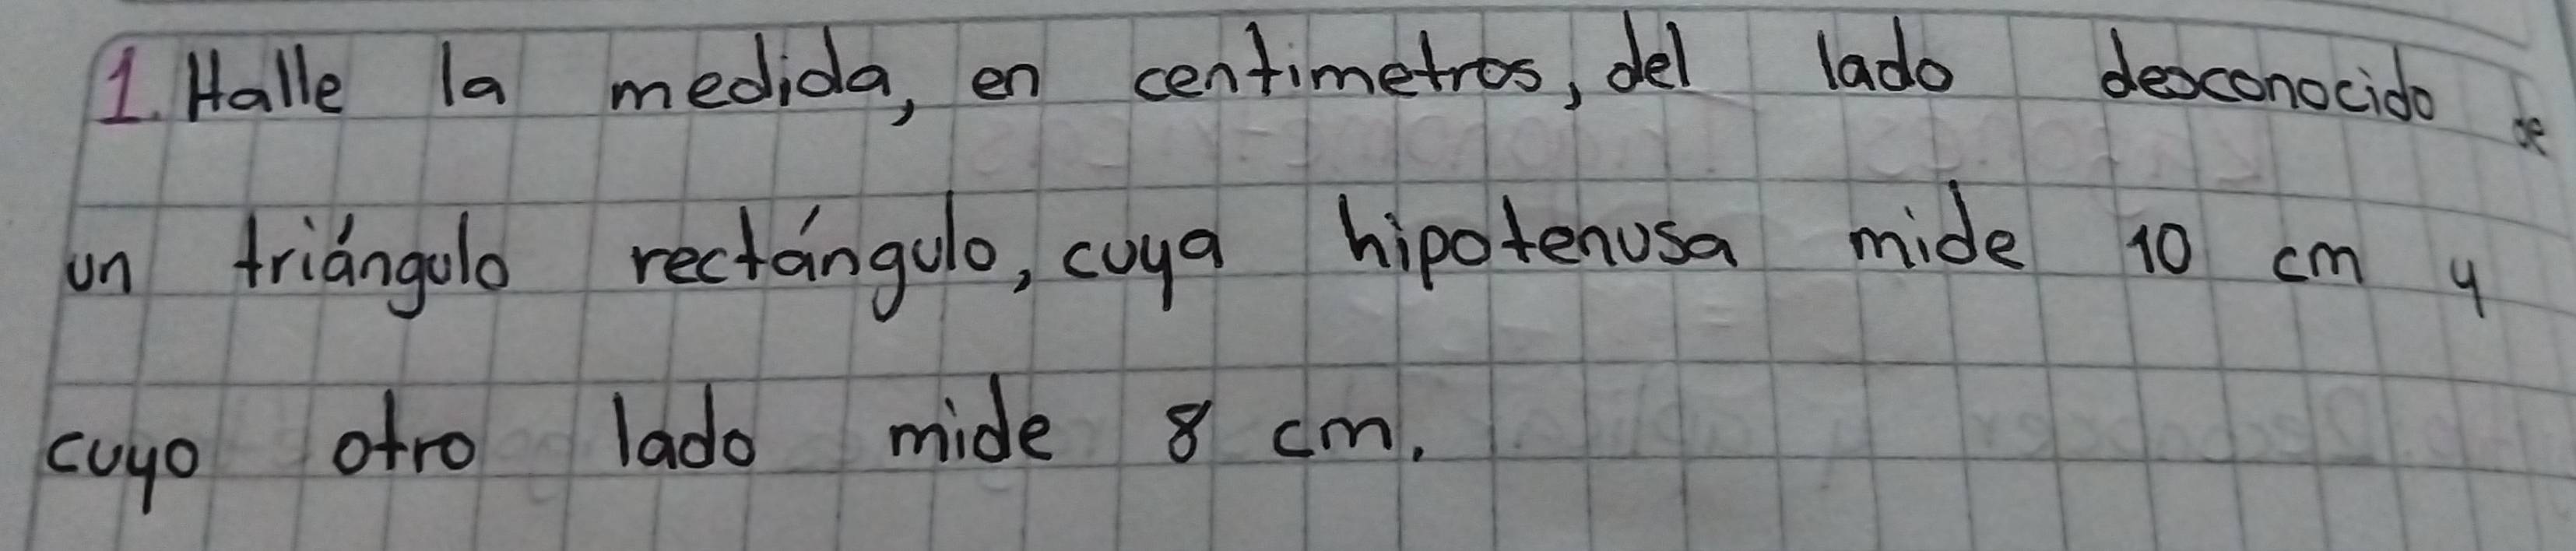 1. Halle la medida, en centimetros, del lado desconocido de
un triángulo rectángulo, cuya hipotenusa mide 10 cm y
cuyo otro lado mide 8 cm.